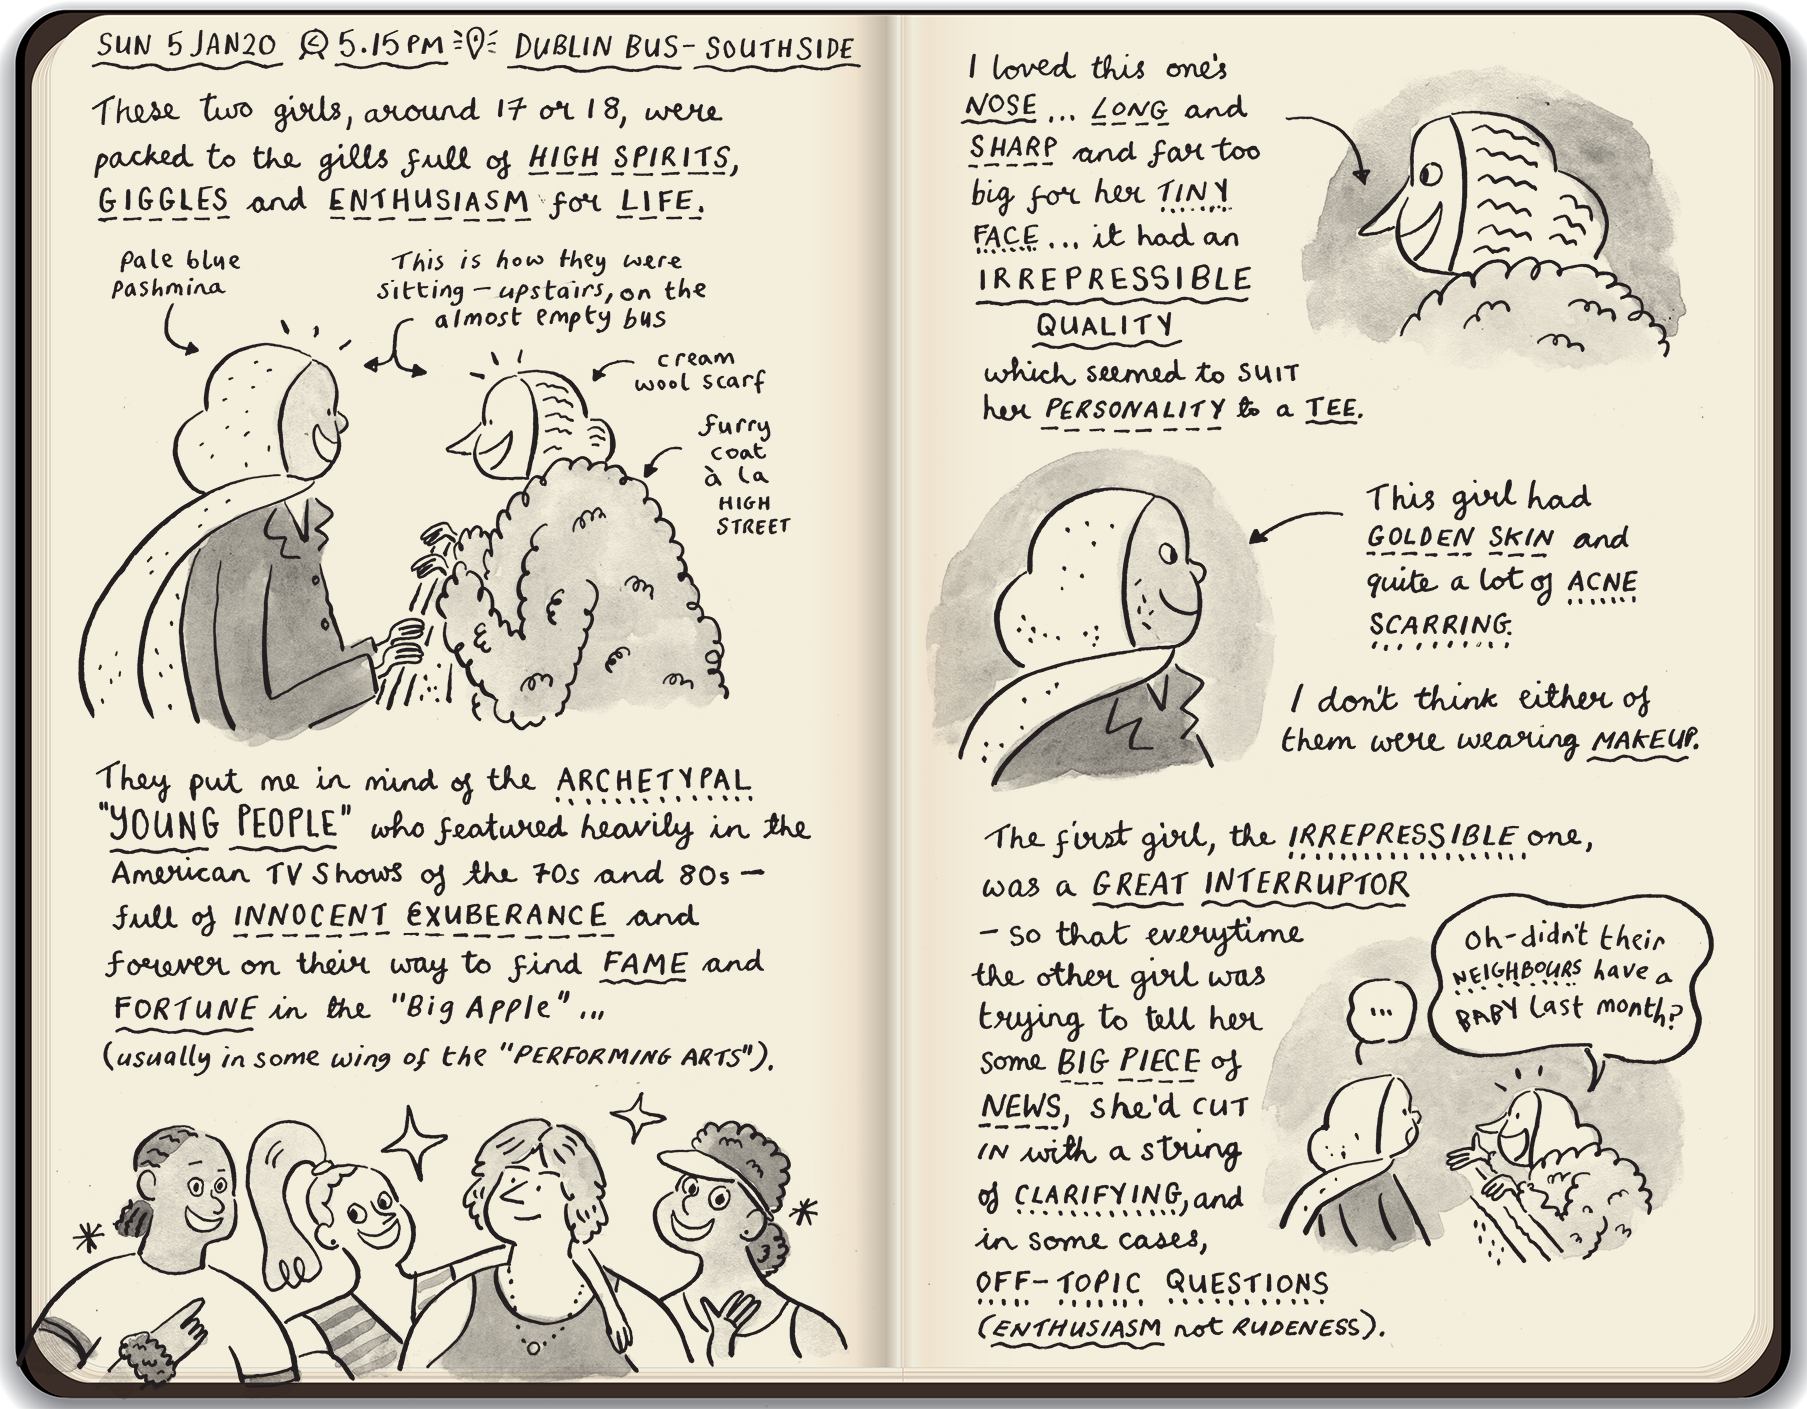 SUN 5 JAN20 5.15PM DUBLIN BUS- SOUTHSIDE
These two girls, around 17 or 18, were
packed to the gills full of HIGH SPIRITS,
GIGGLES and ENTHUSIASM for LIFE.
Pale blue
pashmina
This is how they were
sitting - upstairs, on the
almost empty bus
cream
wool scarf
furry
coat
à la
HIGH
STREET
They put me in mind of the ARCHETYPAL
"YOUNG PEOPLE" who featured heavily in the
American TV Shows of the 70s and 80s —
full of INNOCENT EXUBERANCE and
forever on their way to find FAME and
FORTUNE in the "Big Apple"...
(usually in some wing of the "PERFORMING ARTS").
I loved this one's
NOSE ... LONG and
SHARP and far too
big for her TINY
FACE ... it had an
IRREPRESSIBLE
QUALITY
which seemed to SUIT
her PERSONALITY to a TEE.
This girl had
GOLDEN SKIN and
quite a lot of ACNE
SCARRING.
I don't think either of
them were wearing MAKEUP.
The first girl, the IRREPRESSIBLE one,
was a GREAT INTERRUPTOR
- so that everytime
the other girl was
trying to tell her
some BIG PIECE of
NEWS, she'd CUT
IN with a string
of CLARIFYING, and
in some cases,
OFF-TOPIC QUESTIONS
(ENTHUSIASM not RUDENESS).
...
Oh-didn't their
NEIGHBOURS have a
BABY last month?